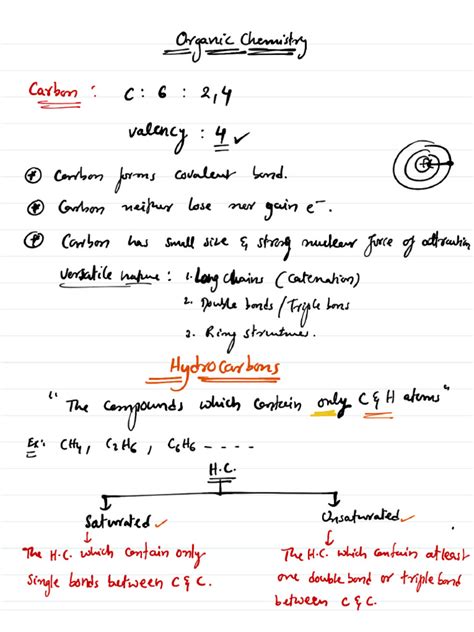 Organic Chemistry
Carbon : C : 6 : 2,4
valency : 4 ✓
* Carbon forms covalent bond.
* Carbon neither lose nor gain e⁻.
* Carbon has small size & strong nuclear force of attraction
versatile nature : 1. Long chains (catenation)
2. Double bonds / Triple bons
3. Ring structures.
Hydrocarbons
"The compounds which contain only C & H atoms"
Ex: CH4, C2H6, C6H6 - - - -
H.C.
Saturated ✓
Unsaturated ✓
The H.C. which contain only
single bonds between C & C.
The H.C. which contain atleast
one double bond or triple bond
between C & C.